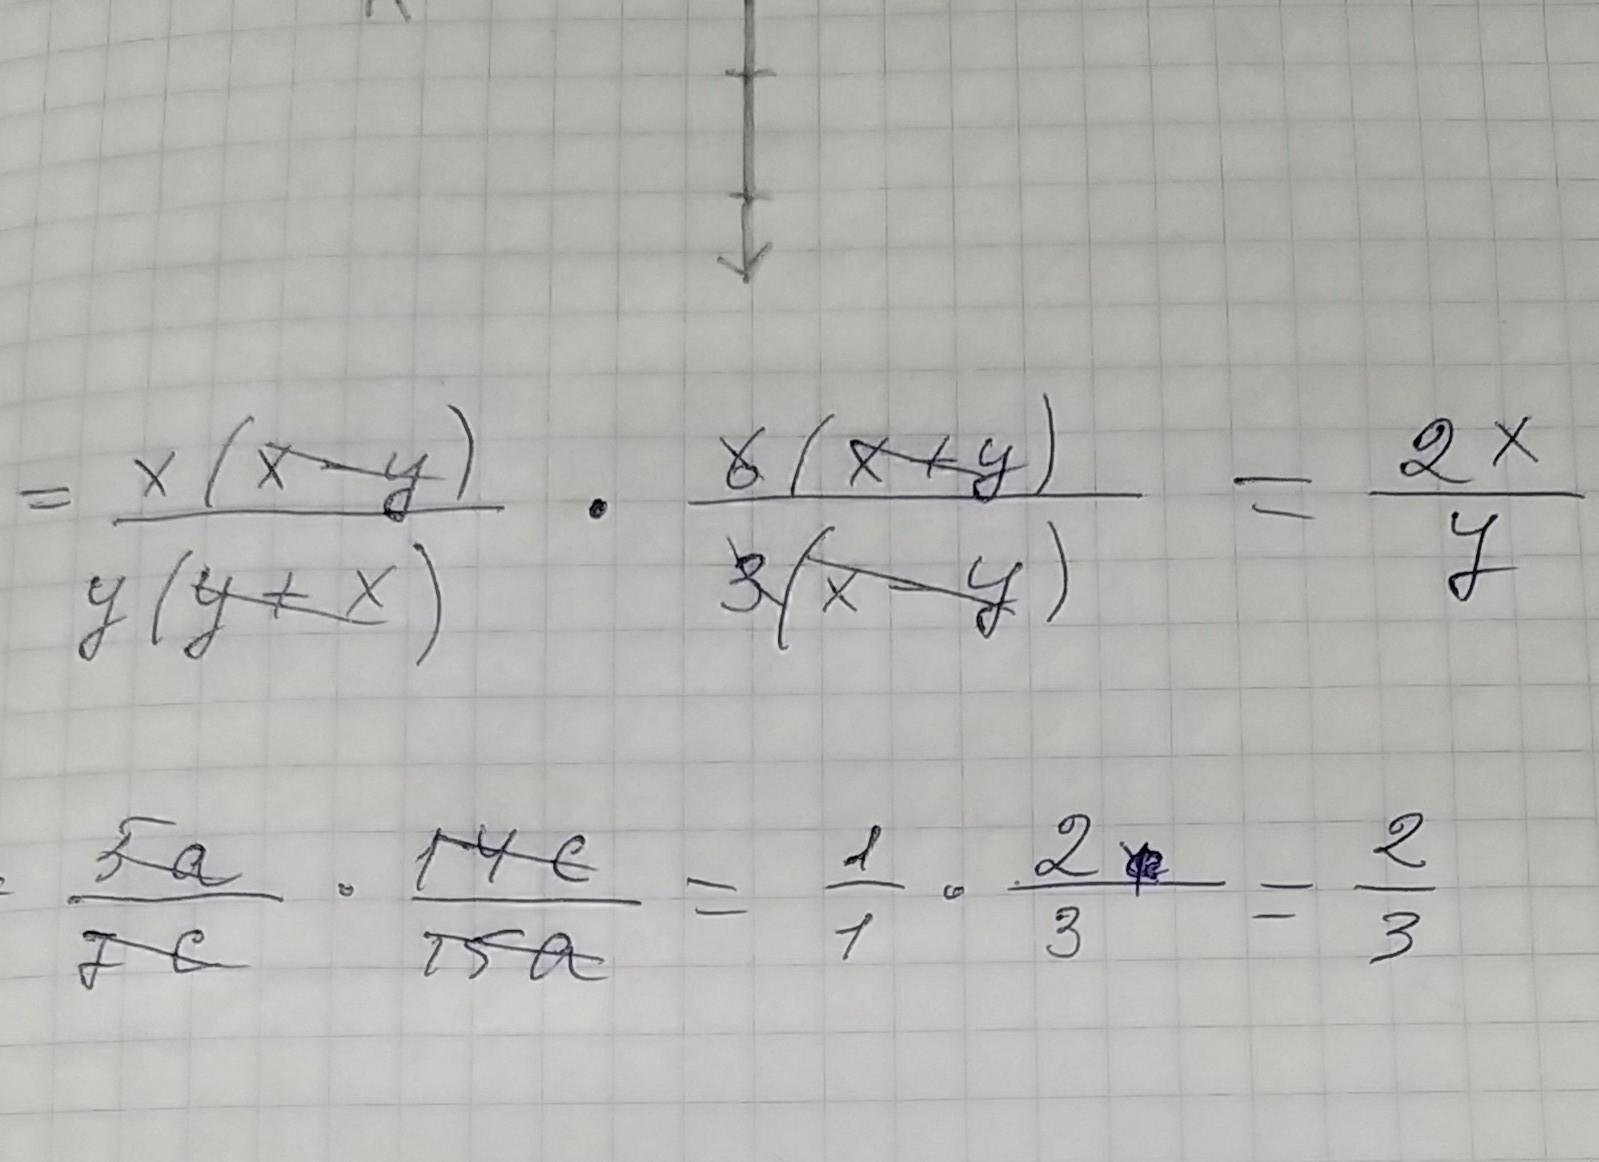 = x(x-y)/y(y+x) · 6(x+y)/3(x-y) = 2x/y
= 5a/7c · 14c/15a = 1/1 · 2/3 = 2/3